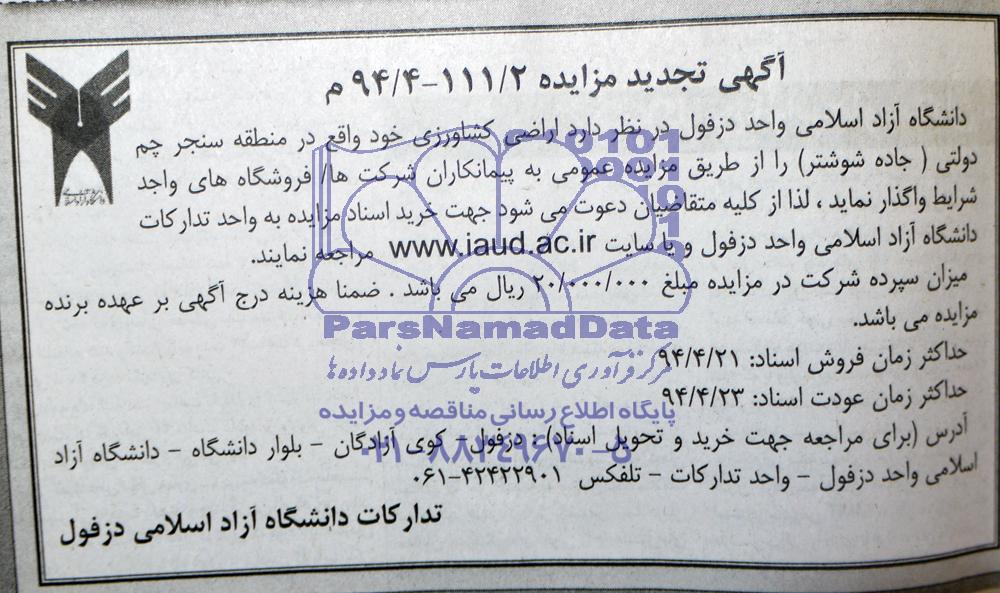 آگهی تجدید مزایده ۱۱۱/۲-۹۴/۴ م
دانشگاه آزاد اسلامی واحد دزفول در نظر دارد اراضی کشاورزی خود واقع در منطقه سنجر چم
دولتی ( جاده شوشتر) را از طریق مزایده عمومی به پیمانکاران شرکت ها/ فروشگاه های واجد
شرایط واگذار نماید ، لذا از کلیه متقاضیان دعوت می شود جهت خرید اسناد مزایده به واحد تدارکات
دانشگاه آزاد اسلامی واحد دزفول و یا سایت www.iaud.ac.ir مراجعه نمایند.
میزان سپرده شرکت در مزایده مبلغ ۲۰/۰۰۰/۰۰۰ ریال می باشد . ضمنا هزینه درج آگهی بر عهده برنده
مزایده می باشد.
حداکثر زمان فروش اسناد: ۹۴/۴/۲۱
حداکثر زمان عودت اسناد: ۹۴/۴/۲۳
آدرس (برای مراجعه جهت خرید و تحویل اسناد) : دزفول – کوی آزادگان – بلوار دانشگاه – دانشگاه آزاد
اسلامی واحد دزفول – واحد تدارکات – تلفکس ۴۲۴۲۲۹۰۱-۰۶۱
تدارکات دانشگاه آزاد اسلامی دزفول
ParsNamadData
مرکز فرآوری اطلاعات پارس نماد داده ها
پایگاه اطلاع رسانی مناقصه و مزایده
۰۲۱-۸۸۳۴۹۶۷۰-۵